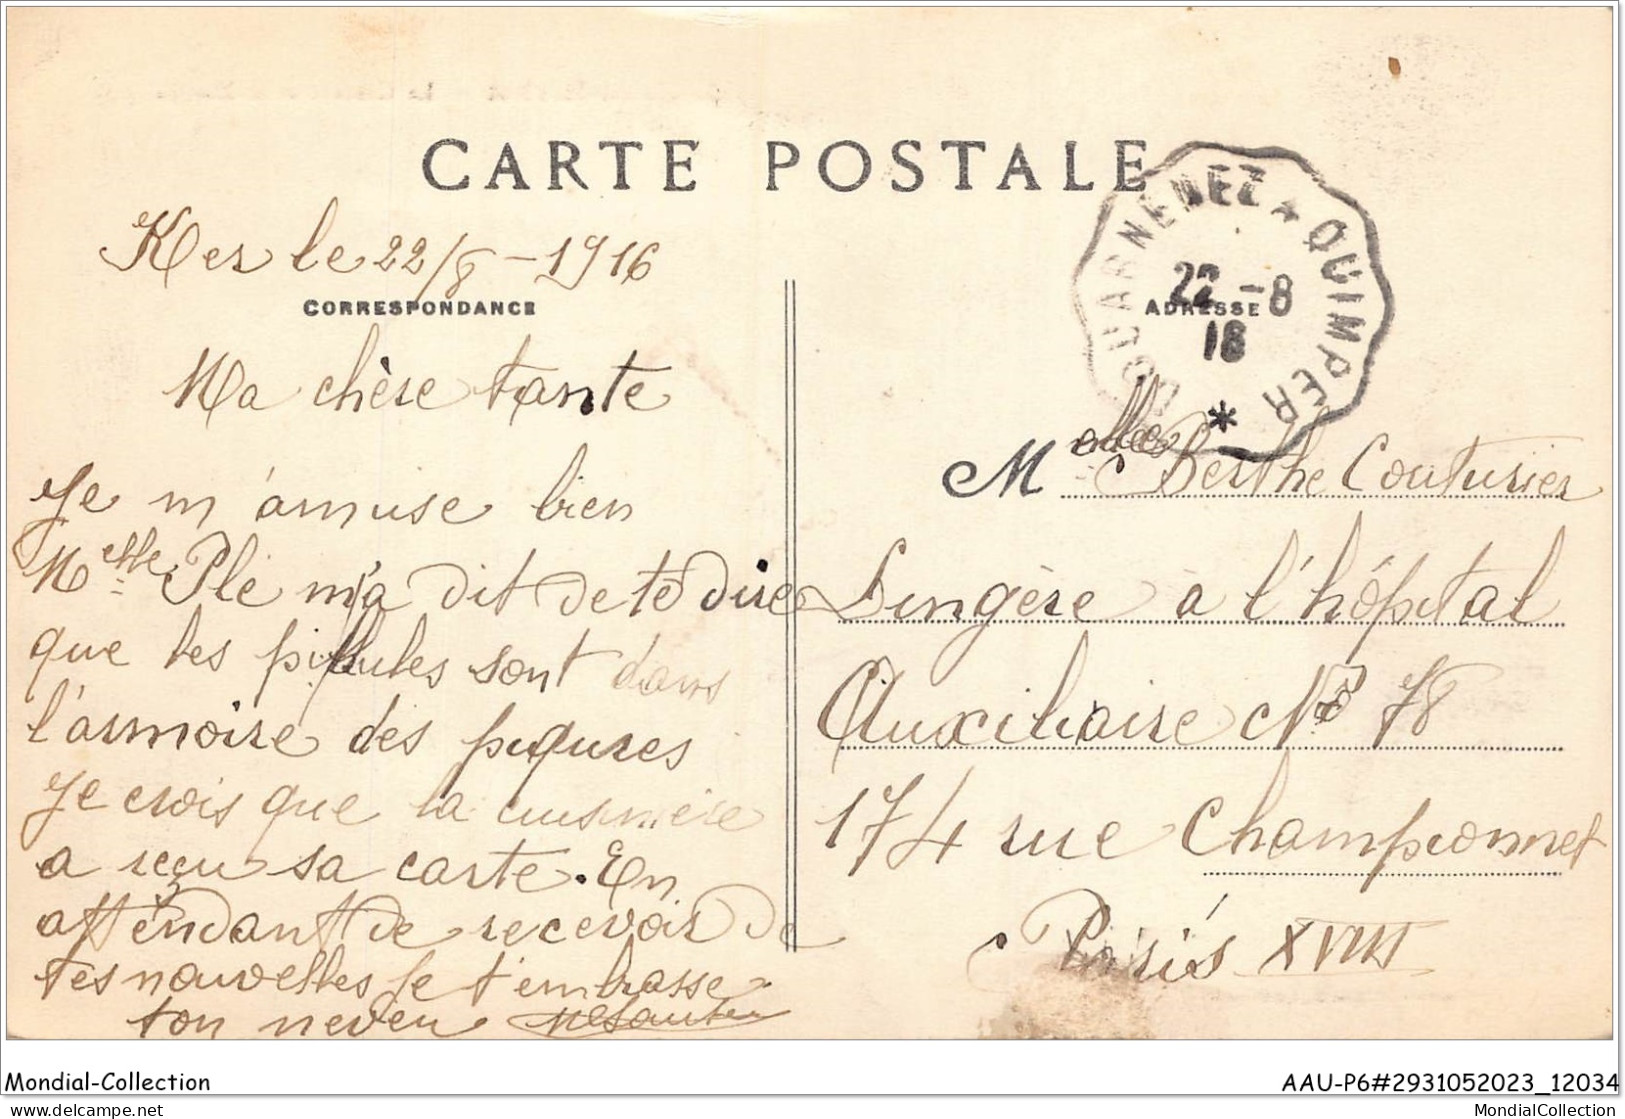 CARTE POSTALE
Ker le 22/8 - 1916
CORRESPONDANCE
Ma chère tante
Je m'amuse bien
Melle Plé m'a dit de te dire
que les pillules sont dans
l'armoire des piqures
Je crois que la cuisinière
a reçu sa carte. En
attendant de recevoir de
tes nouvelles Je t'embrasse
ton neveu
DOUARNENEZ * QUIMPER
22 - 8
16
*
ADRESSE
Melle Berthe Couturier
Lingère a l'hôpital
Auxiliaire No 78
174 rue Championnet
Paris XVIII
Mondial-Collection
AAU-P6#2931052023_12034
delcampe.net
MondialCollection